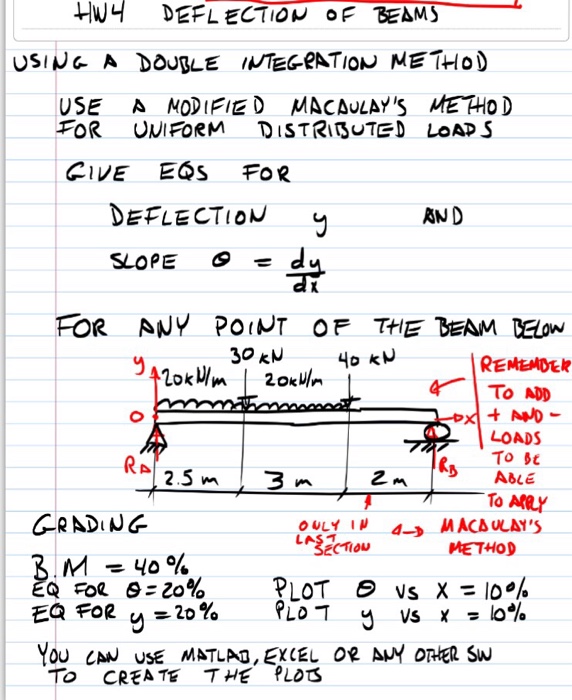 HW4 DEFLECTION OF BEAMS
USING A DOUBLE INTEGRATION METHOD
USE A MODIFIED MACAULAY'S METHOD
FOR UNIFORM DISTRIBUTED LOADS
GIVE EQS FOR
DEFLECTION y AND
SLOPE θ = dy/dx
FOR ANY POINT OF THE BEAM BELOW
30 kN 40 kN
y 20kN/m 20kN/m
REMEMBER
TO ADD
O x + AND -
LOADS
TO BE
ABLE
TO APPLY
MACAULAY'S
METHOD
RA RB
2.5 m 3 m 2 m
ONLY IN
LAST
SECTION
GRADING
B.M = 40%
EQ FOR θ = 20% PLOT θ VS X = 10%
EQ FOR y = 20% PLOT y VS x = 10%
YOU CAN USE MATLAB, EXCEL OR ANY OTHER SW
TO CREATE THE PLOTS